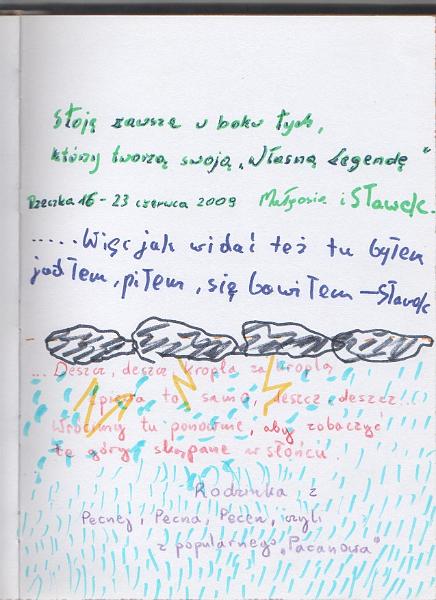 Stoję zawsze u boku tych,
który tworzą swoją „Własną Legendę"
Rzeczka 16 - 23 czerwca 2009 Małgosia i Sławek.
.....Więc jak widać też tu byłem
jadłem, piłem, się bawiłem —Sławek
... Deszcz, deszcz, kropla za kroplą
śpiewa to samo, deszcz, deszcz...
Wrócimy tu ponownie, aby zobaczyć
te góry skąpane w słońcu.
Rodzinka z
Pecnej, Pecna, Pecen, czyli
z popularnego „Pacanowa"